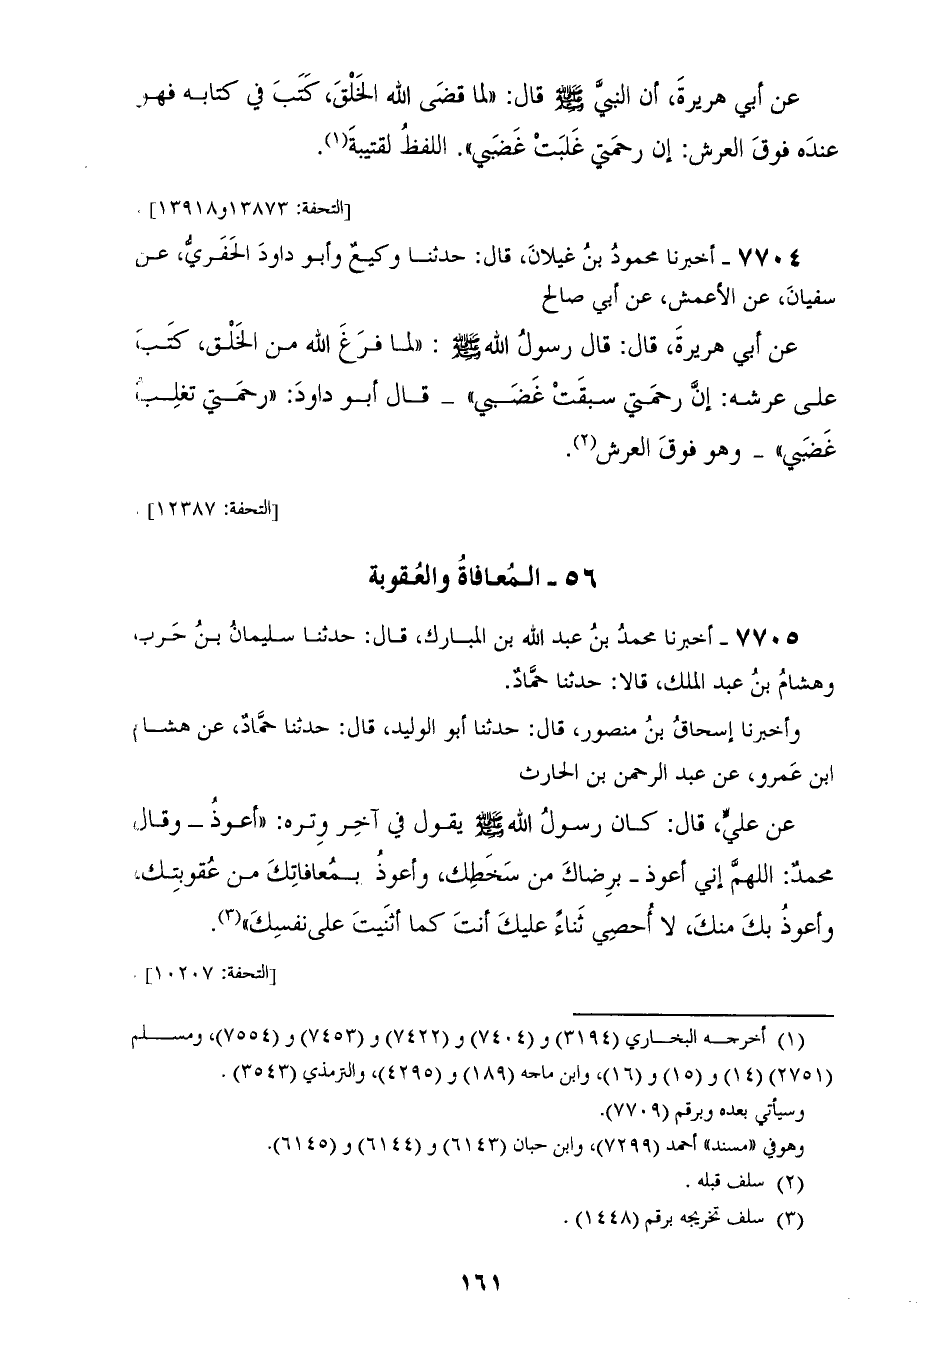 عن أبي هريرةَ، أن النبيَّ ﷺ قال: «لما قضَى الله الخَلْقَ، كَتَبَ في كتابه فهو
عندَه فوقَ العرش: إن رحمَتي غَلبَتْ غَضَبي». اللفظُ لقتيبةَ(١).
[التحفة: ١٣٨٧٣ و١٣٩١٨].
٧٧٠٤ ـ أخبرنا محمودُ بنُ غيلانَ، قال: حدثنا وكيعٌ وأبو داودَ الحَفَريُّ، عن
سفيانَ، عن الأعمش، عن أبي صالح
عن أبي هريرةَ، قال: قال رسولُ الله ﷺ : «لما فرَغَ الله من الخَلْق، كتَبَ
على عرشه: إنَّ رحمَتي سبقَتْ غَضَبي» ـ قال أبو داودَ: «رحمَتي تغلِبُ
غَضَبي» ـ وهو فوقَ العرش(٢).
[التحفة: ١٢٣٨٧].
٥٦ ـ المُعافاةُ والعُقوبة
٧٧٠٥ ـ أخبرنا محمدُ بنُ عبد الله بن المبارك، قال: حدثنا سليمانُ بنُ حَرب،
وهشامُ بنُ عبد الملك، قالا: حدثنا حمَّادٌ.
وأخبرنا إسحاقُ بنُ منصور، قال: حدثنا أبو الوليد، قال: حدثنا حمَّادٌ، عن هشام
ابن عَمرو، عن عبد الرحمن بن الحارث
عن عليٍّ، قال: كان رسولُ الله ﷺ يقول في آخِر وِتره: «أعوذُ ـ وقال
محمدٌ: اللهمَّ إني أعوذ ـ برِضاكَ من سَخَطِك، وأعوذُ بمُعافاتِكَ من عُقوبتِك،
وأعوذُ بكَ منكَ، لا أُحصِي ثَناءً عليكَ أنتَ كما أثنَيتَ على نفسِكَ»(٣).
[التحفة: ١٠٢٠٧].
(١) أخرجه البخاري (٣١٩٤) و (٧٤٠٤) و (٧٤٢٢) و (٧٤٥٣) و (٧٥٥٤)، ومسلم
(٢٧٥١) (١٤) و (١٥) و (١٦)، وابن ماجه (١٨٩) و (٤٢٩٥)، والترمذي (٣٥٤٣).
وسيأتي بعده وبرقم (٧٧٠٩).
وهو في «مسند» أحمد (٧٢٩٩)، وابن حبان (٦١٤٣) و (٦١٤٤) و (٦١٤٥).
(٢) سلف قبله.
(٣) سلف تخريجه برقم (١٤٤٨).
١٦١